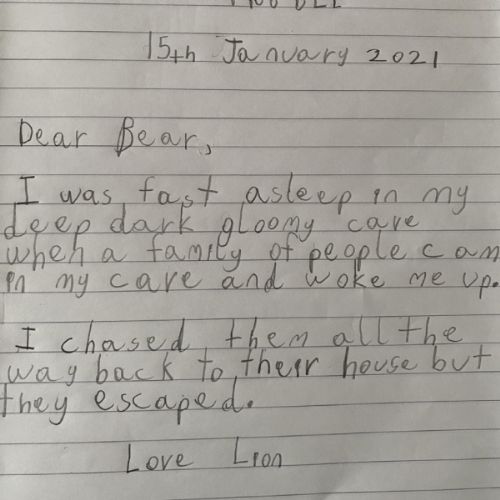 15th January 2021
Dear Bear,
I was fast asleep in my
deep dark gloomy cave
when a family of people cam
in my cave and woke me up.
I chased them all the
way back to their house but
they escaped.
Love Lion